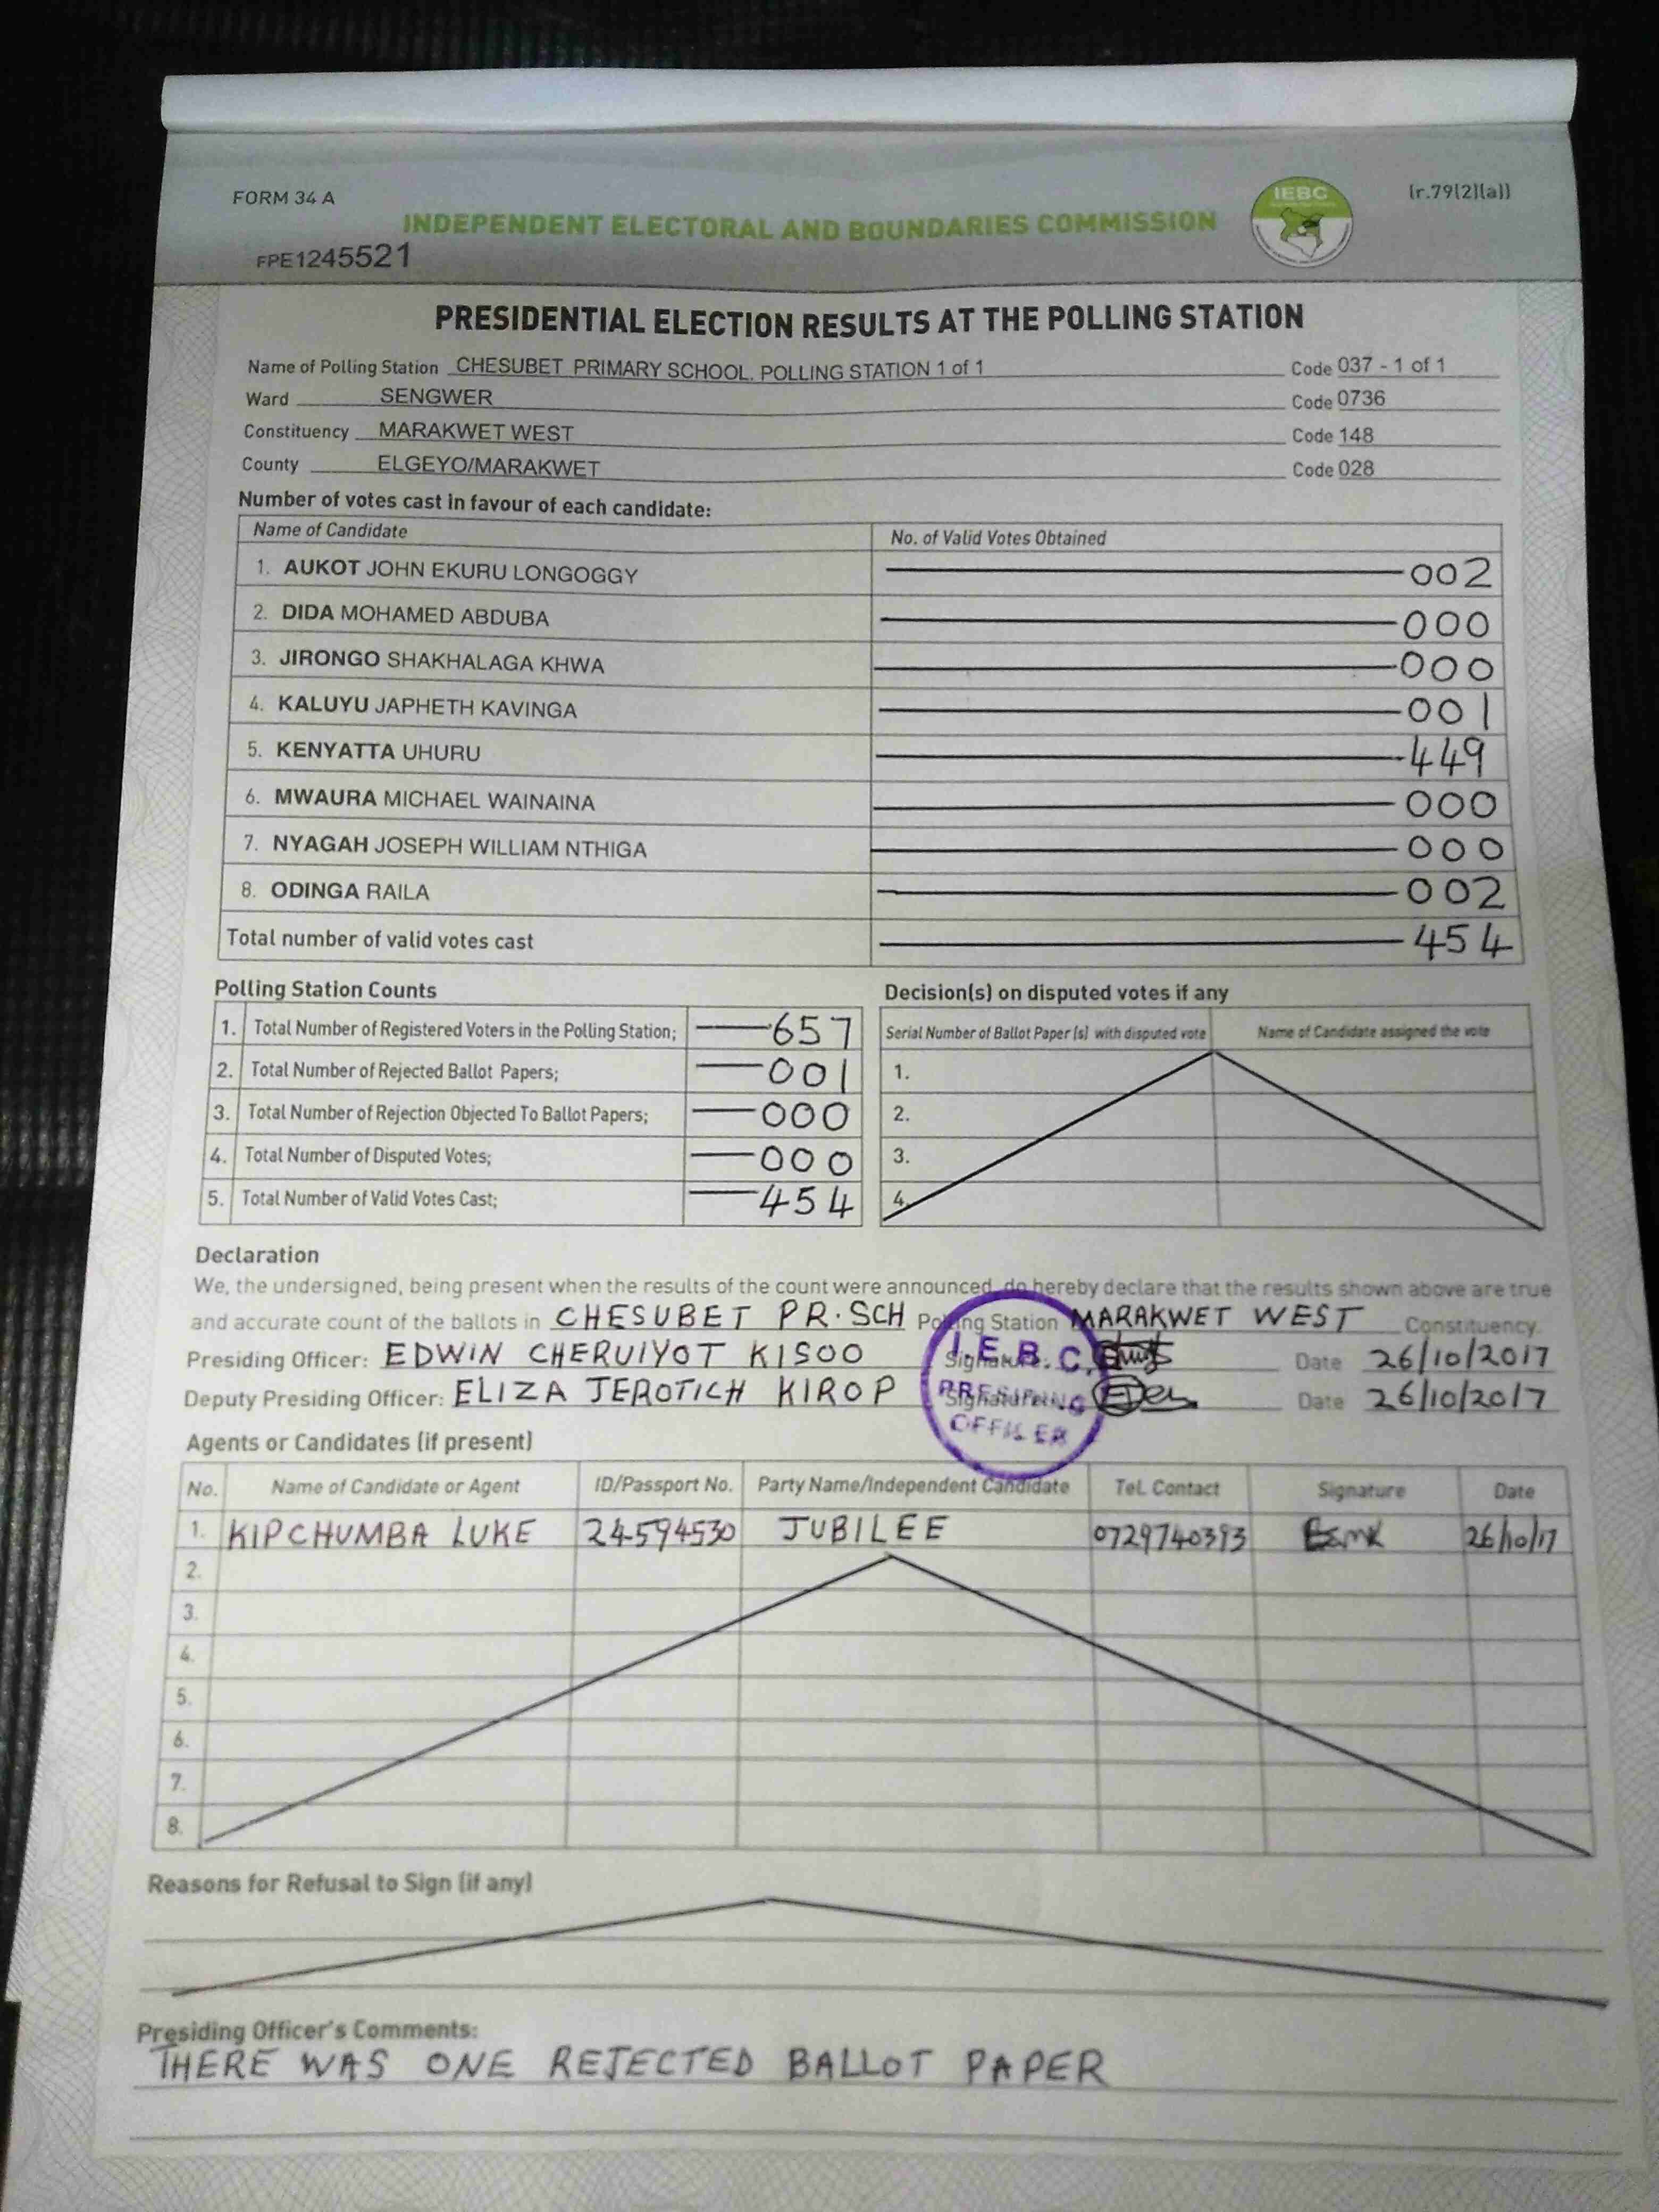 FORM 34 A
IEBC
(r.79(2)(a))
INDEPENDENT ELECTORAL AND BOUNDARIES COMMISSION
FPE1245521
PRESIDENTIAL ELECTION RESULTS AT THE POLLING STATION
Name of Polling Station CHESUBET PRIMARY SCHOOL. POLLING STATION 1 of 1 Code 037 - 1 of 1
Ward SENGWER Code 0736
Constituency MARAKWET WEST Code 148
County ELGEYO/MARAKWET Code 028
Number of votes cast in favour of each candidate:
Name of Candidate No. of Valid Votes Obtained
1. AUKOT JOHN EKURU LONGOGGY 002
2. DIDA MOHAMED ABDUBA 000
3. JIRONGO SHAKHALAGA KHWA 000
4. KALUYU JAPHETH KAVINGA 001
5. KENYATTA UHURU 449
6. MWAURA MICHAEL WAINAINA 000
7. NYAGAH JOSEPH WILLIAM NTHIGA 000
8. ODINGA RAILA 002
Total number of valid votes cast 454
Polling Station Counts
1. Total Number of Registered Voters in the Polling Station; 657
2. Total Number of Rejected Ballot Papers; 001
3. Total Number of Rejection Objected To Ballot Papers; 000
4. Total Number of Disputed Votes; 000
5. Total Number of Valid Votes Cast; 454
Decision(s) on disputed votes if any
Serial Number of Ballot Paper (s) with disputed vote Name of Candidate assigned the vote
1.
2.
3.
4.
Declaration
We, the undersigned, being present when the results of the count were announced, do hereby declare that the results shown above are true
and accurate count of the ballots in CHESUBET PR.SCH Polling Station MARAKWET WEST Constituency.
Presiding Officer: EDWIN CHERUIYOT KISOO Signature: Date 26/10/2017
Deputy Presiding Officer: ELIZA JEROTICH KIROP Signature: Date 26/10/2017
I.E.B.C.
PRESIDING
OFFICER
Agents or Candidates (if present)
No. Name of Candidate or Agent ID/Passport No. Party Name/Independent Candidate Tel. Contact Signature Date
1. KIPCHUMBA LUKE 24594530 JUBILEE 0729740393 26/10/17
2.
3.
4.
5.
6.
7.
8.
Reasons for Refusal to Sign (if any)
Presiding Officer's Comments:
THERE WAS ONE REJECTED BALLOT PAPER